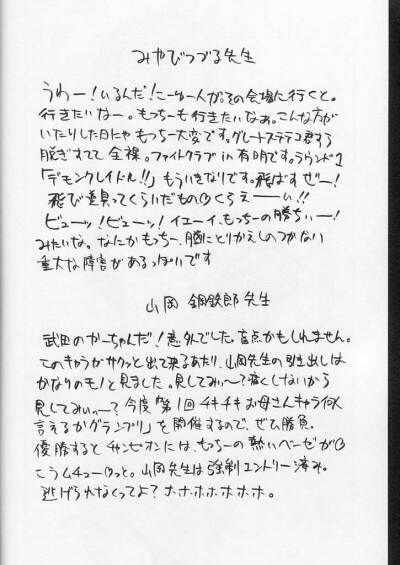 みやびつづる先生
うわー!いるんだ!こーゆー人が。その会場に行くと。
行きたいなー。もっちーも行きたいなぁ。こんな方が
いたりした日にゃもっちー大変です。グレートステテコ君する
脱ぎすてて全裸。ファイトクラブin有明です。ラウンド1
「デモンクレイドル!!」もういきなりです。飛ばすぜー!
飛び道具ってくらいだもの くらえーーい!!
ビューッ!ビューッ!イエーイ、もっちーの勝ちぃー!
みたいな。なんかもっちー、脳にとりかえしのつかない
重大な障害があるっぽいです
山岡鋼鉄郎先生
武田のかーちゃんだ!意外でした。盲点かもしれません。
このキャラがサクッと出て来るあたり、山岡先生の引き出しは
かなりのモノと見ました。見してみぃ〜?渡としないから
見してみぃ〜?今度「第1回チキチキお母さんキャラ何人
言えるかグランプリ」を開催するので、ぜひ勝負。
優勝するとチャンピオンには、もっちーの熱いベーゼが
こうムチューっと。山岡先生は強制エントリー済み。
逃げられなくってよ?ホホホホホホホ。